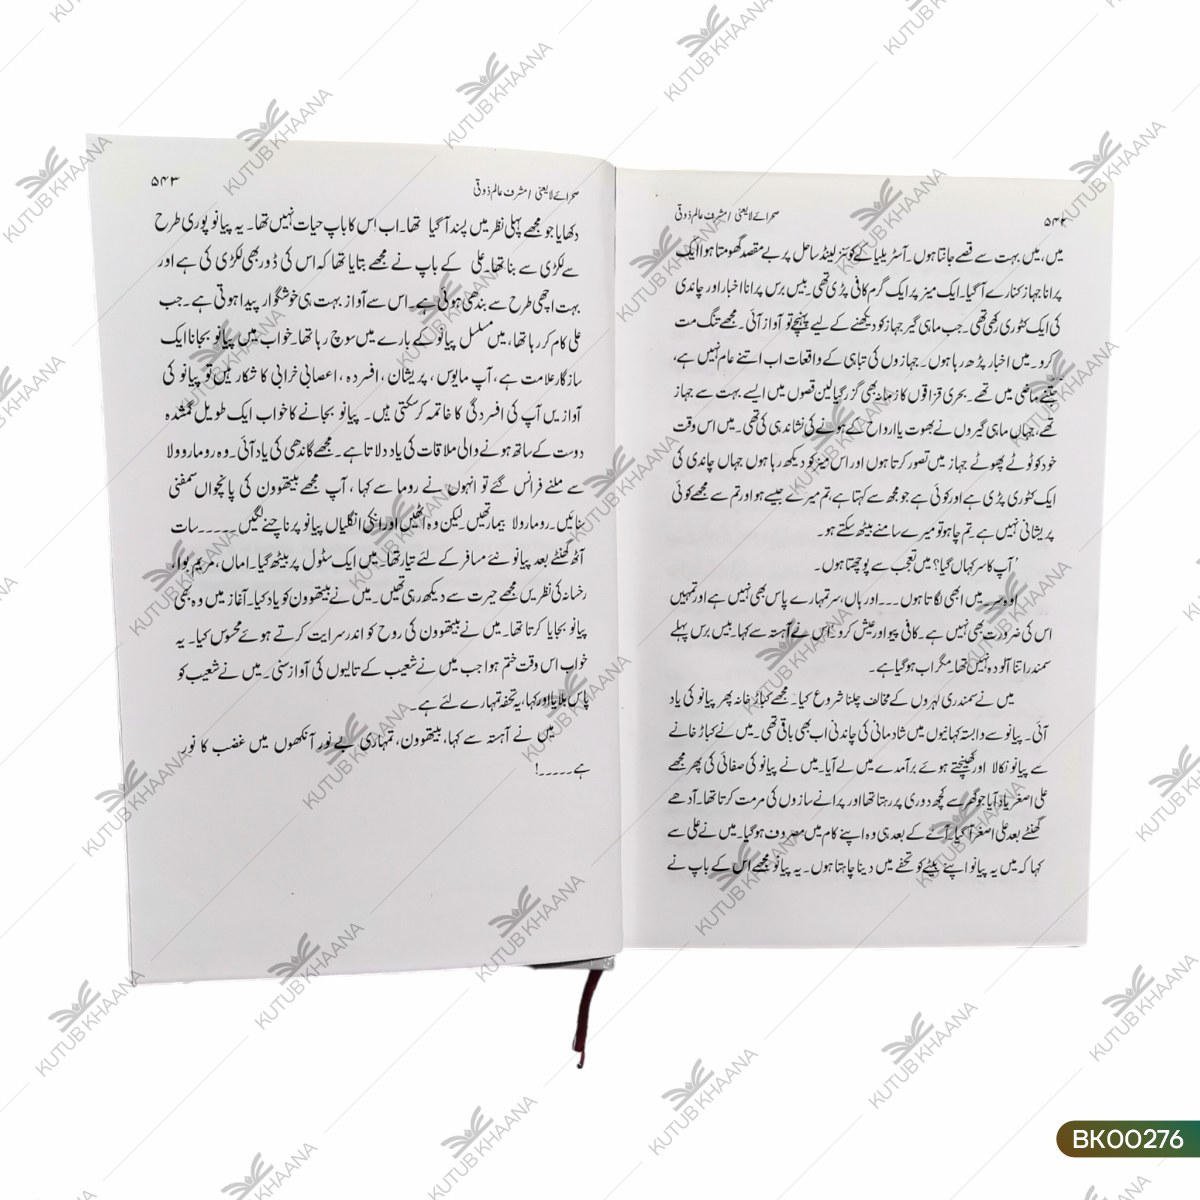 ۵۴۲
صحرائے لایعنی / مشرف عالم ذوقی
میں، میں بہت سے قصے جانتا ہوں۔ آسٹریلیا کے کوئنز لینڈ ساحل پر بے مقصد گھومتا ہوا ایک
پرانا جہاز کنارے آ گیا۔ ایک میز پر ایک گرم کافی پڑی تھی۔ بیس برس پرانا اخبار اور چاندی
کی ایک کٹوری رکھی تھی۔ جب ماہی گیر جہاز کو دیکھنے کے لیے پہنچے تو آواز آئی۔ مجھے تنگ مت
کرو۔ میں اخبار پڑھ رہا ہوں۔ جہازوں کی تباہی کے واقعات اب اتنے عام نہیں ہے،
جتنے ماضی میں تھے۔ بحری قزاقوں کا زمانہ بھی گزر گیا لیکن قصوں میں ایسے بہت سے جہاز
تھے، جہاں ماہی گیروں نے بھوت یا ارواح کے ہونے کی نشاندہی کی تھی۔ میں اس وقت
خود کو ٹوٹے پھوٹے جہاز میں تصور کرتا ہوں اور اس میز کو دیکھ رہا ہوں جہاں چاندی کی
ایک کٹوری پڑی ہے اور کوئی ہے جو مجھ سے کہتا ہے، تم میرے جیسے ہو اور تم سے مجھے کوئی
پریشانی نہیں ہے تم چاہو تو میرے سامنے بیٹھ سکتے ہو۔
'آپ کا سر کہاں گیا؟ میں تعجب سے پوچھتا ہوں۔
اوہ سر۔ میں ابھی لگاتا ہوں۔۔۔ اور ہاں، سر تمہارے پاس بھی نہیں ہے اور تمہیں
اس کی ضرورت بھی نہیں ہے۔ کافی پیو اور عیش کرو۔ اس نے آہستہ سے کہا۔ بیس برس پہلے
سمندر اتنا آلودہ نہیں تھا۔ مگر اب ہو گیا ہے۔
میں نے سمندری لہروں کے مخالف چلنا شروع کیا۔ مجھے کباڑ خانہ پھر پیانو کی یاد
آئی۔ پیانو سے وابستہ کہانیوں میں شادمانی کی چاندنی اب بھی باقی تھی۔ میں نے کباڑ خانے
سے پیانو نکالا اور کھینچتے ہوئے برآمدے میں لے آیا۔ میں نے پیانو کی صفائی کی پھر مجھے
علی اصغر یاد آیا جو گھر سے کچھ دوری پر رہتا تھا اور پرانے سازوں کی مرمت کرتا تھا۔ آدھے
گھنٹے بعد علی اصغر آ گیا۔ آنے کے بعد ہی وہ اپنے کام میں مصروف ہو گیا۔ میں نے علی سے
کہا کہ میں یہ پیانو اپنے بیٹے کو تحفے میں دینا چاہتا ہوں۔ یہ پیانو مجھے اس کے باپ نے
صحرائے لایعنی / مشرف عالم ذوقی
۵۴۳
دکھایا جو مجھے پہلی نظر میں پسند آ گیا تھا۔ اب اس کا باپ حیات نہیں تھا۔ یہ پیانو پوری طرح
سے لکڑی سے بنا تھا۔ علی کے باپ نے مجھے بتایا تھا کہ اس کی ڈور بھی لکڑی کی ہے اور
بہت اچھی طرح سے بندھی ہوئی ہے۔ اس سے آواز بہت ہی خوشگوار پیدا ہوتی ہے۔ جب
علی کام کر رہا تھا، میں مسلسل پیانو کے بارے میں سوچ رہا تھا۔ خواب میں پیانو بجانا ایک
سازگار علامت ہے، آپ مایوس، پریشان، افسردہ، اعصابی خرابی کا شکار ہیں تو پیانو کی
آوازیں آپ کی افسردگی کا خاتمہ کر سکتی ہیں۔ پیانو بجانے کا خواب ایک طویل گمشدہ
دوست کے ساتھ ہونے والی ملاقات کی یاد دلاتا ہے۔ مجھے گاندھی کی یاد آئی۔ وہ روما رولا
سے ملنے فرانس گئے تو انہوں نے روما سے کہا، آپ مجھے بیتھوون کی پانچواں سمفنی
سنائیں۔ روما رولا بیمار تھیں۔ لیکن وہ اٹھیں اور انکی انگلیاں پیانو پر ناچنے لگیں۔۔۔۔۔ سات
آٹھ گھنٹے بعد پیانو نئے مسافر کے لئے تیار تھا۔ میں ایک سٹول پر بیٹھ گیا۔ اماں، مریم بوا،
رخسانہ کی نظریں مجھے حیرت سے دیکھ رہی تھیں۔ میں نے بیتھوون کو یاد کیا۔ آغاز میں وہ بھی
پیانو بجایا کرتا تھا۔ میں نے بیتھوون کی روح کو اندر سرایت کرتے ہوئے محسوس کیا۔ یہ
خواب اس وقت ختم ہوا جب میں نے شعیب کے تالیوں کی آواز سنی۔ میں نے شعیب کو
پاس بلایا اور کہا، یہ تحفہ تمہارے لئے ہے۔
میں نے آہستہ سے کہا، بیتھوون، تمہاری بے نور آنکھوں میں غضب کا نور
ہے۔۔۔۔۔!
KUTUB KHAANA
BK00276